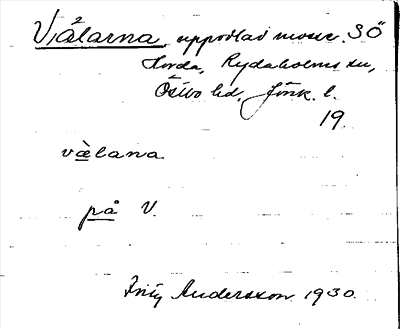 Viålarna, uppodlad mosse. SÖ
Horda, Rydaholms sn,
Östbo hd, Jönk. l.
19.
vålana
på V.
Fritz Andersson 1930.